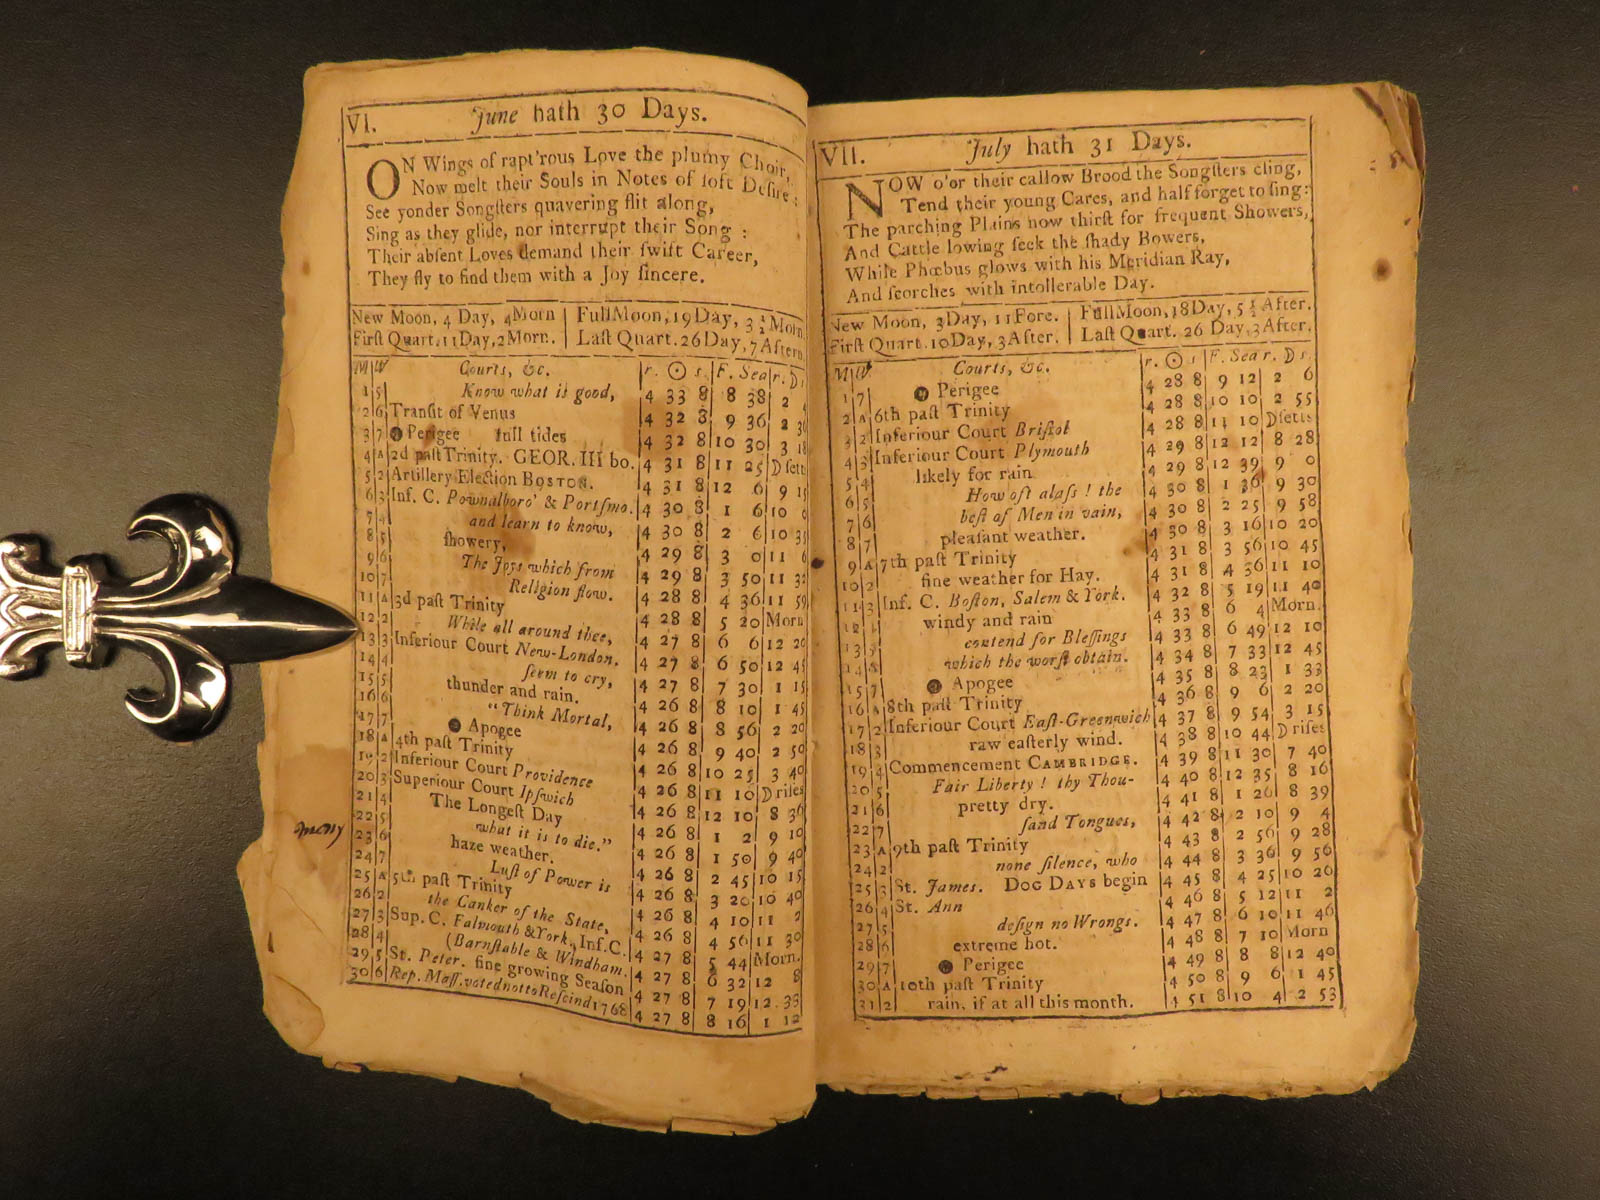 VI. June hath 30 Days.
ON Wings of rapt'rous Love the plumy Choir,
Now melt their Souls in Notes of ſoft Deſire;
See yonder Songſters quavering flit along,
Sing as they glide, nor interrupt their Song :
Their abſent Loves demand their ſwift Career,
They fly to find them with a Joy ſincere.
New Moon, 4 Day, 4Morn | FullMoon, 19Day, 3 ½ Morn
Firſt Quart. 11Day, 2Morn. | Laſt Quart. 26Day, 7 Aftern
M W Courts, &c. r. ☉ s. F. Sea r. D s.
1 5 Know what is good, 4 33 8 8 38 2
2 6 Tranſit of Venus 4 32 8 9 36 2
3 7 Perigee full tides 4 32 8 10 30 3 18
4 A 2d paſt Trinity. GEOR. III bo. 4 31 8 11 25 D ſett
5 2 Artillery Election BOSTON. 4 31 8 12 6 9 15
6 3 Inf. C. Pownalboro' & Portſmo. 4 30 8 1 6 10 0
7 4 and learn to know, 4 30 8 2 6 10 35
8 5 ſhowery, 4 29 8 3 0 11 6
9 6 The Joys which from 4 29 8 3 50 11 32
10 7 Religion flow. 4 28 8 4 36 11 59
11 A 3d paſt Trinity 4 28 8 5 20 Morn
12 2 While all around thee, 4 27 8 6 6 12 20
13 3 Inferiour Court New-London. 4 27 8 6 50 12 45
14 4 ſeem to cry, 4 27 8 7 30 1 15
15 5 thunder and rain. 4 26 8 8 10 1 45
16 6 "Think Mortal, 4 26 8 8 56 2 20
17 7 Apogee 4 26 8 9 40 2 50
18 A 4th paſt Trinity 4 26 8 10 25 3 40
19 2 Inferiour Court Providence 4 26 8 11 10 D riſes
20 3 Superiour Court Ipſwich 4 26 8 12 10 8 36
21 4 The Longeſt Day 4 26 8 1 2 9 10
22 5 what it is to die." 4 26 8 1 50 9 40
23 6 haze weather. 4 26 8 2 45 10 15
24 7 Luſt of Power is 4 26 8 3 20 10 40
25 A 5th paſt Trinity 4 26 8 4 10 11 2
26 2 the Canker of the State, 4 27 8 4 56 11 30
27 3 Sup. C. Falmouth & York, Inf. C. 4 27 8 5 44 Morn.
28 4 (Barnſtable & Windham. 4 27 8 6 32 12 8
29 5 St. Peter. fine growing Seaſon 4 27 8 7 19 12 33
30 6 Rep. Maſſ. voted not to Reſcind 1768 4 27 8 8 16 1 12
VII. July hath 31 Days.
NOW o'or their callow Brood the Songſters cling,
Tend their young Cares, and half forget to ſing:
The parching Plains now thirſt for frequent Showers,
And Cattle lowing ſeek the ſhady Bowers,
While Phœbus glows with his Meridian Ray,
And ſcorches with intollerable Day.
New Moon, 3Day, 11Fore. | FullMoon, 18Day, 5 ½ After.
Firſt Quart. 10Day, 3After. | Laſt Quart. 26 Day, 3After.
M W Courts, &c. r. ☉ s. F. Sea r. D s.
1 7 Perigee 4 28 8 9 12 2 6
2 A 6th paſt Trinity 4 28 8 10 10 2 55
3 2 Inferiour Court Briſtol 4 28 8 11 10 D ſetts
4 3 Inferiour Court Plymouth 4 29 8 12 12 8 28
5 4 likely for rain 4 29 8 12 39 9 0
6 5 How oft alaſs ! the 4 30 8 1 36 9 30
7 6 beſt of Men in vain, 4 30 8 2 25 9 58
8 7 pleaſant weather. 4 30 8 3 16 10 20
9 A 7th paſt Trinity 4 31 8 3 56 10 45
10 2 fine weather for Hay. 4 31 8 4 36 11 10
11 3 Inf. C. Boſton, Salem & York. 4 32 8 5 19 11 40
12 4 windy and rain 4 33 8 6 4 Morn.
13 5 contend for Bleſſings 4 33 8 6 49 12 10
14 6 which the worſt obtain. 4 34 8 7 33 12 45
15 7 Apogee 4 35 8 8 23 1 33
16 A 8th paſt Trinity 4 36 8 9 6 2 20
17 2 Inferiour Court Eaſt-Greenwich 4 37 8 9 54 3 15
18 3 raw eaſterly wind. 4 38 8 10 44 D riſes
19 4 Commencement CAMBRIDGE. 4 39 8 11 30 7 40
20 5 Fair Liberty ! thy Thou- 4 40 8 12 35 8 16
21 6 pretty dry. 4 41 8 1 26 8 39
22 7 ſand Tongues, 4 42 8 2 10 9 4
23 A 9th paſt Trinity 4 43 8 2 56 9 28
24 2 none ſilence, who 4 44 8 3 36 9 56
25 3 St. James. DOG DAYS begin 4 45 8 4 25 10 26
26 4 St. Ann 4 46 8 5 12 11 2
27 5 deſign no Wrongs. 4 47 8 6 10 11 46
28 6 extreme hot. 4 48 8 7 10 Morn
29 7 Perigee 4 49 8 8 8 12 40
30 A 10th paſt Trinity 4 50 8 9 6 1 45
31 2 rain, if at all this month. 4 51 8 10 4 2 53